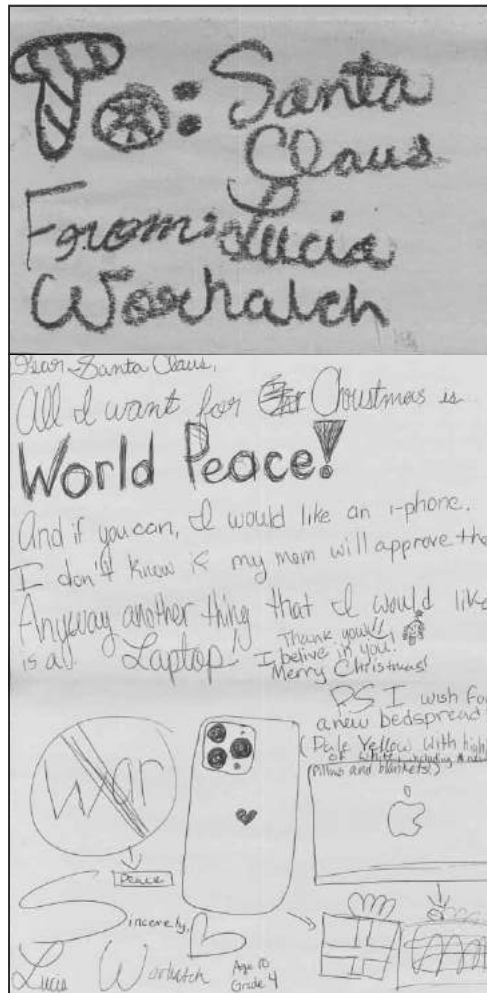 To: Santa
Claus
From: Lucia
Worhatch
Dear Santa Claus,
All I want for Christmas is
World Peace!
And if you can, I would like an i-phone.
I don't know if my mom will approve tho
Anyway another thing that I would like
is a Laptop!
Thank you!!
I belive in you!
Merry Christmas!
PS I wish for
a new bedspread
(Pale Yellow with high
of white, including
pillows and blankets!)
War
Peace
Sincerely,
Lucia Worhatch
Age 10
Grade 4